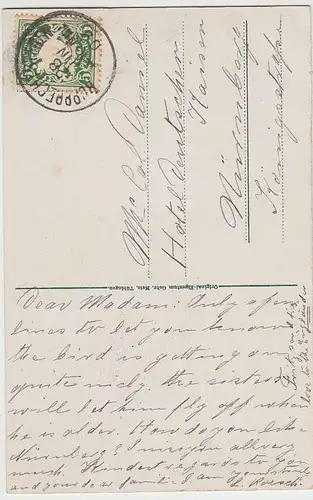 Mrs. Col. Daniel
Hotel Deutscher
Kaiser
Nürnberg
Königstraße
Original-Eigentum Gebr. Metz, Tübingen
Dear Madam: Only a few
lines to let you know
the bird is getting on
quite nicely, the sisters
will let him fly off when
he is older. How do you like
Nürnberg? I miss you all very
much. Kindest regards to you
and your dear family I am yours truly